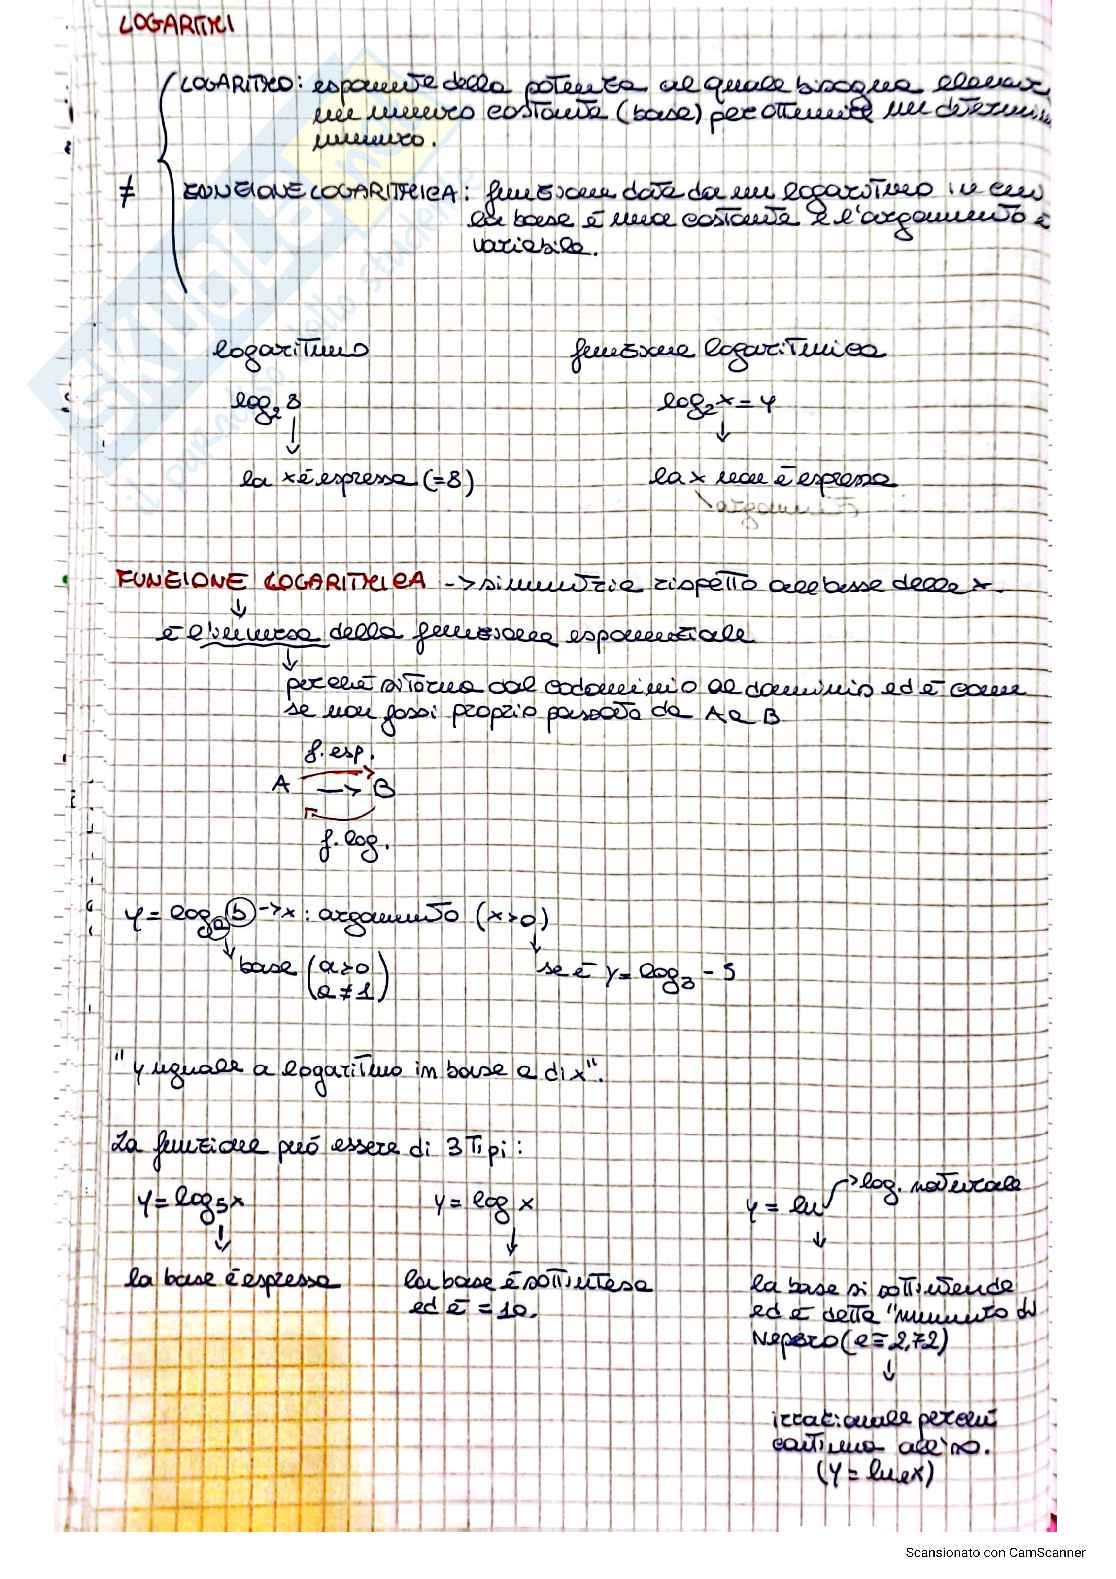 LOGARITMI
LOGARITMO: esponente della potenza al quale bisogna elevare
un numero costante (base) per ottenere un determin
numero.
≠ FUNZIONE LOGARITMICA: funzione data da un logaritmo in cui
la base è una costante e l'argomento è
variabile.
logaritmo funzione logaritmica
log₂ 8 log₂ x = y
↓ ↓
la x è espressa (=8) la x non è espressa
argomento
FUNZIONE LOGARITMICA -> simmetria rispetto all'asse della x.
↓
è l'inversa della funzione esponenziale
↓
perché si torna dal codominio al dominio ed è come
se non fossi proprio passata da A a B
f. esp.
A --> B
f. log.
y = logₐ b -> x : argomento (x>0)
base (a>0 se è y = log₃ - 5
a≠1)
"y uguale a logaritmo in base a di x".
La funzione può essere di 3 tipi:
y = log₅x y = log x y = ln -> log. naturale
↓ ↓ ↓
la base è espressa la base è sottintesa la base si sottintende
ed è = 10. ed è detta "numero di
Nepero (e = 2,72)
↓
irrazionale perché
continua all'∞.
(y = ln ex)
SKUOLA.net
il paradiso dello studente
Scansionato con CamScanner